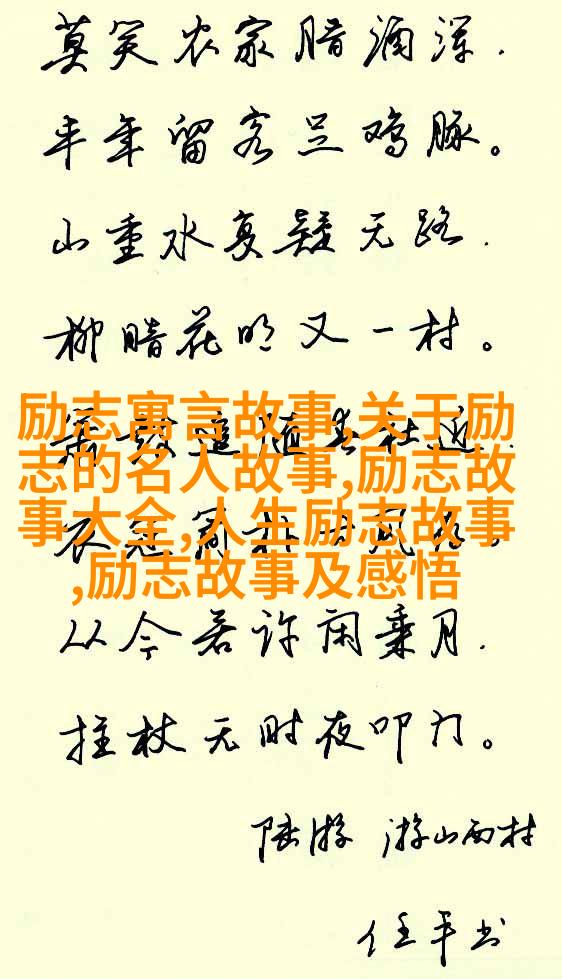 莫笑农家腊酒浑.
丰年留客足鸡豚。
山重水复疑无路.
柳暗花明又一村。
励志寓言故事,关于励
志的名人故事,励志故
事大全,人生励志故事
,励志故事及感悟
追随春社近
衣冠简朴古风
从今若许闲乘月.
拄杖无时夜叩门。
陆游 游山西村
任平书